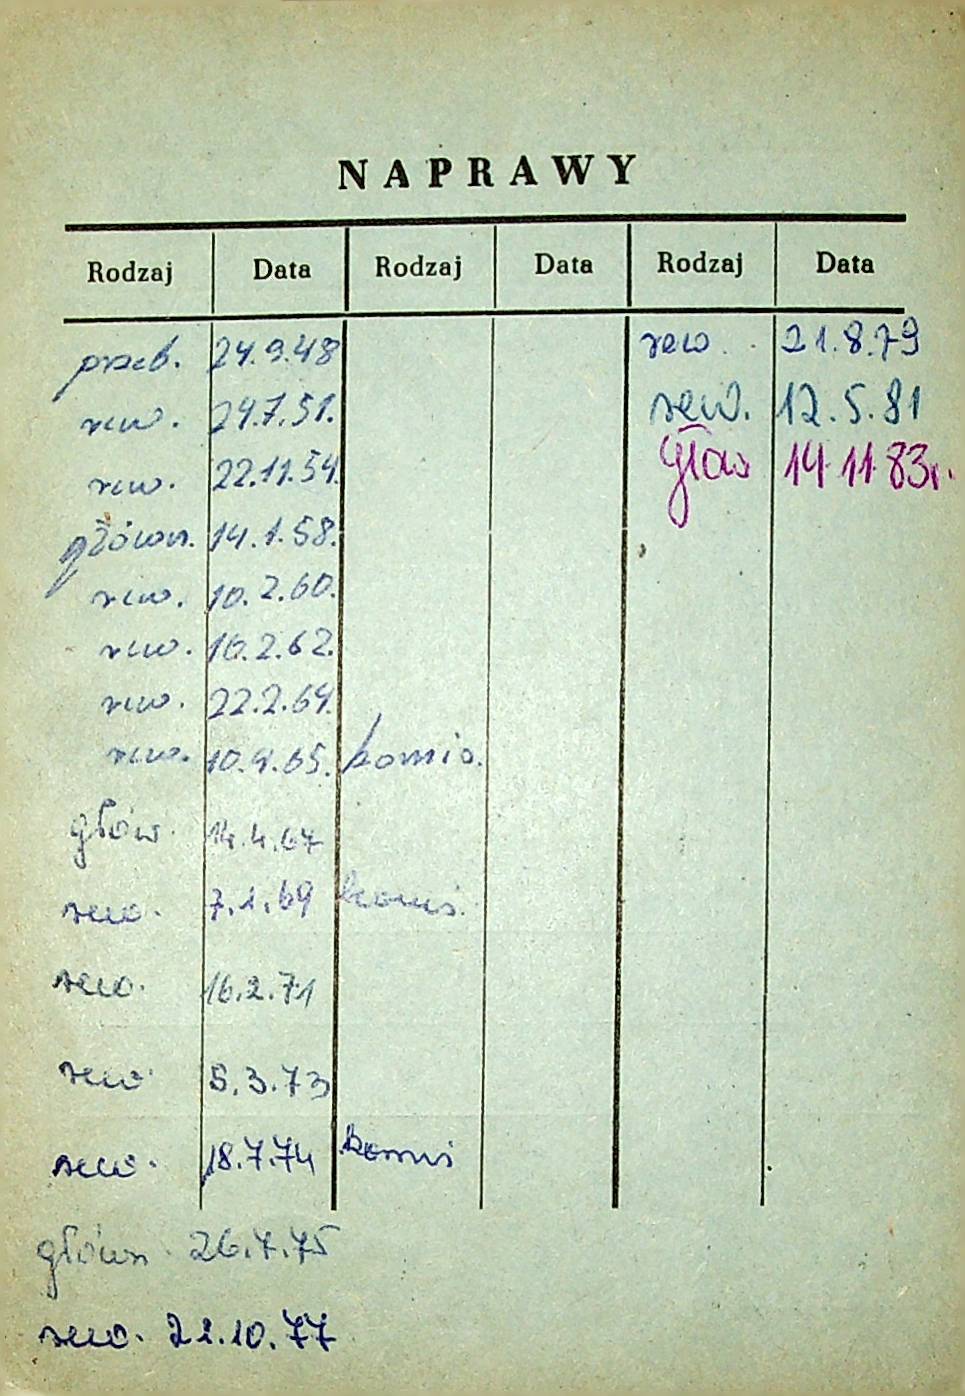 NAPRAWY
Rodzaj Data Rodzaj Data Rodzaj Data
przeb. 24.9.48
rew. 24.7.51.
rew. 22.11.54.
główn. 14.1.58.
rew. 10.2.60.
rew. 10.2.62.
rew. 22.2.64.
rew. 10.9.65. komis.
głów. 14.4.67
rew. 7.1.69 komis.
rew. 16.2.71
rew. 5.3.73
rew. 18.7.74 komis
główn. 26.7.75
rew. 21.10.77
rew. 21.8.79
rew. 12.5.81
głów 14 11 83r.